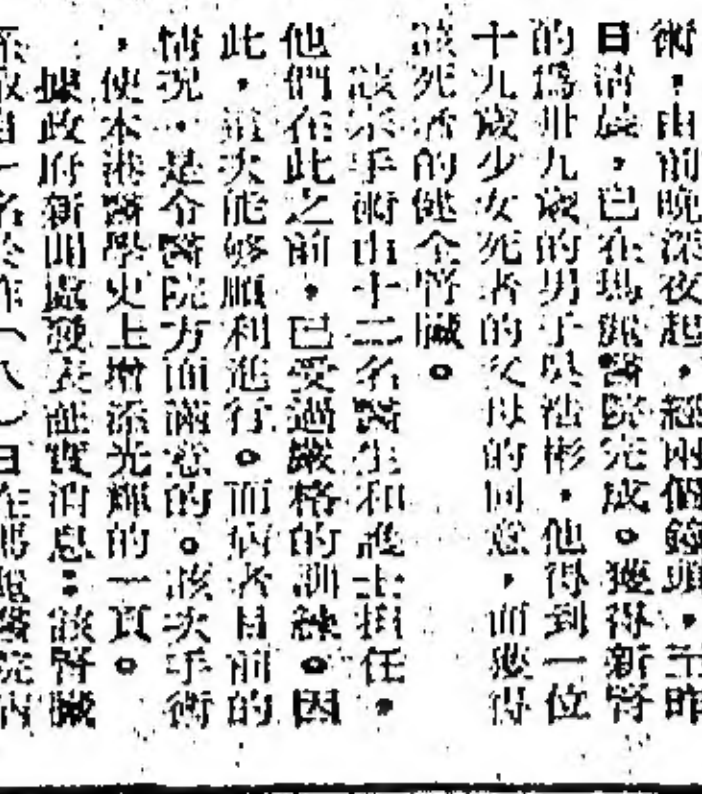 術，由前晚深夜起，經兩個鐘頭，至昨
日清晨，已在瑪麗醫院完成。獲得新腎
的為卅九歲的男子吳 彬，他得到一位
十九歲少女死者的父母的同意，而獲得
該死者的健全腎臟。
該宗手術由十二名醫生和護士担任，
他們在此之前，已受過嚴格的訓練。因
此，這次能够順利進行。而病者目前的
情況，是令醫院方面滿意的。該次手術
，使本港醫學史上增添光輝的一頁。
據政府新聞處發表證實消息：該腎臟
系取自一名於昨（八）日在瑪麗醫院內